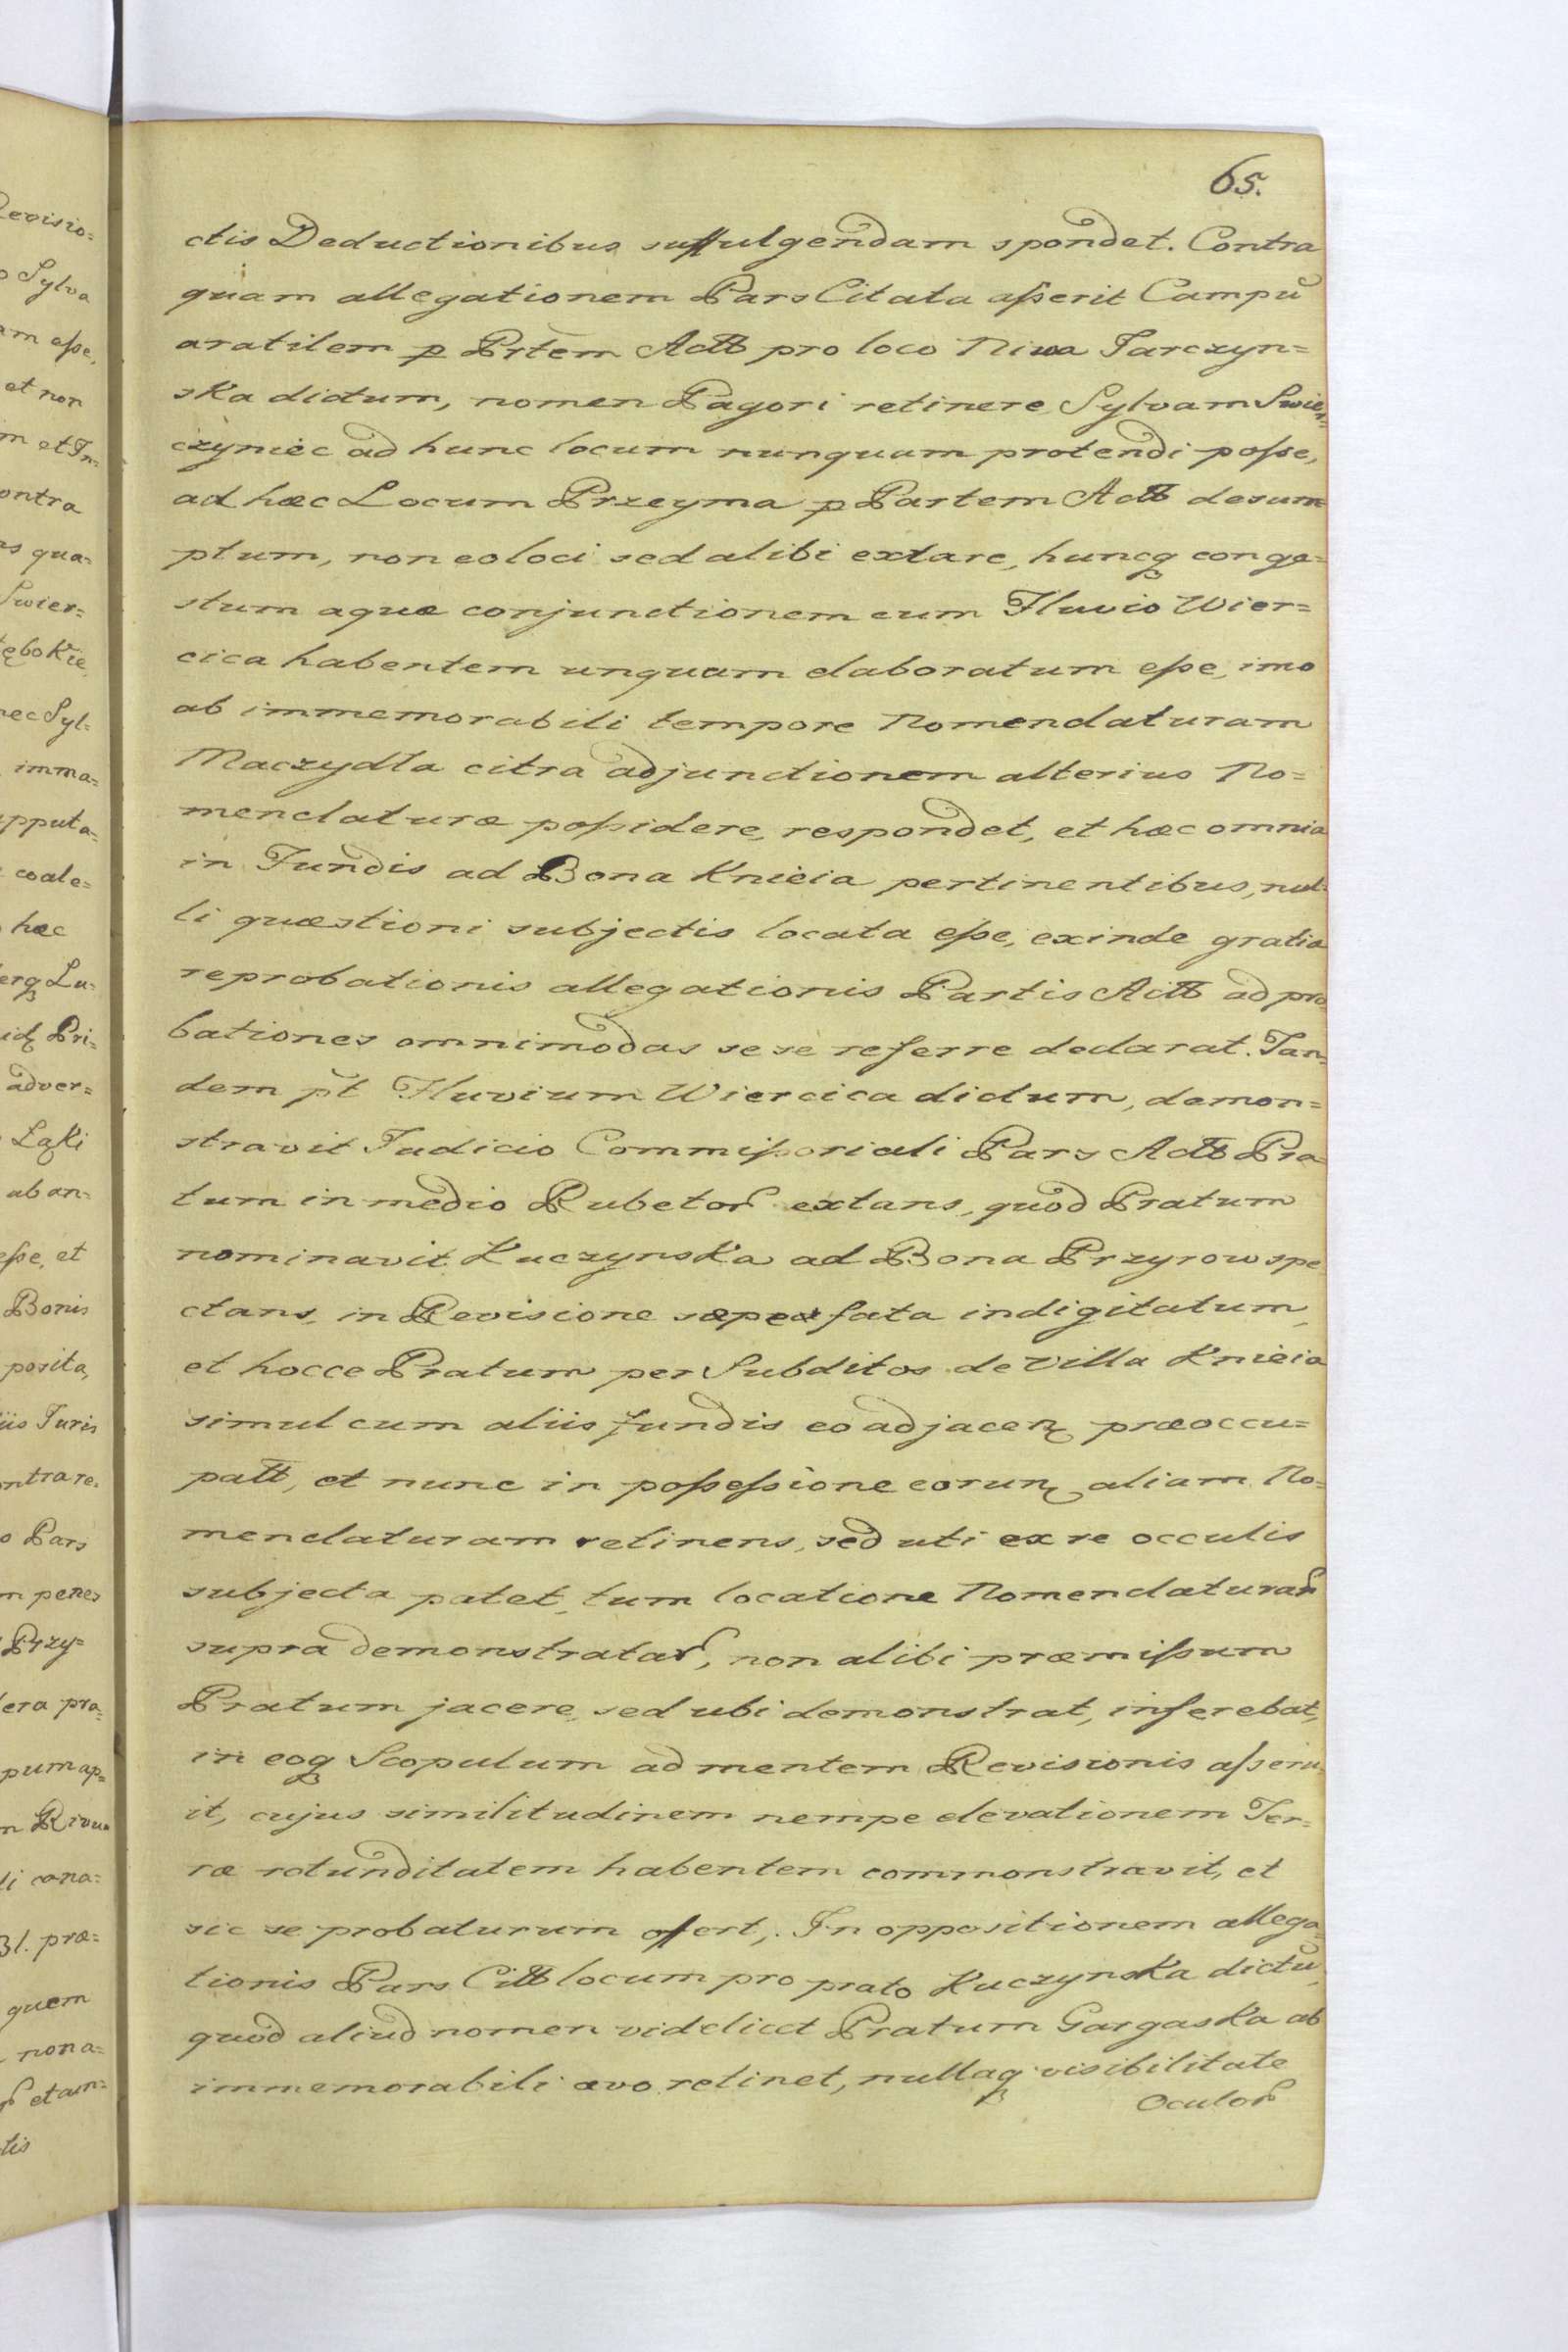 65.
Revisio=
o Sylva
am eſse,
et non
m et In=
ontra
ns qua=
Swier=
ębokie,
nec Syl=
imma=
pputa=
coale=
hæc
erq Lu=
Pri=
adver=
Łąki
ab an=
eſse, et
Bonis
posita,
iis Juris
ontra re.
o Pars
m penes
Przy=
era pra=
pum ap=
m Rivu
li cana=
31. præ=
quem
nona=
et am=
tis
ctis Deductionibus suffulgendam spondet. Contra
quam allegationem Pars Citata aſserit Campũ
aratilem p Prtem Actt pro loco Niwa Tarczyn=
ska dictum, nomen Pagori retinere, Sylvam Swier=
czyniec ad hunc locum nunquam protendi poſse,
ad hæc Locum Przeyma p Partem Actt desum
ptum, non eo loci sed alibi extare, huncq conge=
stum aquæ conjunctionem cum Fluvio Wier=
cica habentem unquam elaboratum eſse, imo
ab immemorabili tempore Nomenclaturam
Maczydła citra adjunctionem alterius No=
menclaturæ poſsidere, respondet, et hæc omnia
in Fundis ad Bona Knieia pertinentibus, nul=
li quæstioni subjectis locata eſse, exinde gratia
reprobationis allegationis Partis Actt ad pro
bationes omnimodas se se referre declarat. Tan=
dem pt Fluvium Wiercica dictum, demon=
stravit Judicio Commiſsoriali Pars Actt Pra=
tum in medio Rubetor extans, quod Pratum
nominavit Kuczynska ad Bona Przyrow spe
ctans, in Revisione sæpe fata indigitatum,
et hocce Pratum per Subditos de Villa Knieia
simul cum aliis fundis eo adjacen præoccu=
patt, et nunc in poſseſsione eorun aliam No=
menclaturam retinens, sed uti ex re occulis
subjecta patet, tum locatione Nomenclaturar
supra demonstratar, non alibi præmiſsum
Pratum jacere, sed ubi demonstrat, inferebat,
in eoq Scopulum ad mentem Revisionis aſseru=
it, cujus similitudinem nempe elevationem Ter=
ræ rotunditatem habentem commonstravit, et
sic se probaturum offert,. In oppositionem allega=
tionis Pars Citt locum pro prato Kuczynska dictũ,
quod aliud nomen videlicet Pratum Gargaska ab
immemorabili ævo retinet, nullaq visibilitate
Oculor